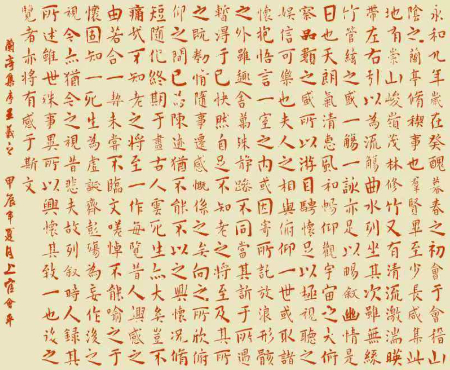 永和九年歲在癸醜暮春之初會于會稽山
陰之蘭亭脩稧事也群賢畢至少長咸集此
地有崇山峻嶺茂林修竹又有清流激湍暎
帶左右引以為流觴曲水列坐其次雖無絲
竹管絃之盛一觴一詠亦足以暢敘幽情是
日也天朗氣清惠風和暢仰觀宇宙之大俯
察品類之盛所以遊目騁懷足以極視聽之
娛信可樂也夫人之相與俯仰一世或取諸
懷抱悟言一室之內或因寄所託放浪形骸
之外雖趣舍萬殊靜躁不同當其欣於所遇
暫得于己快然自足不知老之將至及其所
之既惓情隨事遷感慨係之矣向之所欣俛
仰之間已為陳迹猶不能不以之興懷況脩
短隨化終期于盡古人云死生亦大矣豈不
痛哉每攬昔人興感之
由若合一契未嘗不臨文嗟悼不能喻之于
懷固知一死生為虛誕齊彭殤為妄作後之
視今亦猶今之視昔悲夫故列敘時人錄其
所述雖世殊事異所以興懷其致一也後之
覽者亦將有感于斯文
蘭亭集序王羲之 甲辰年夏月上